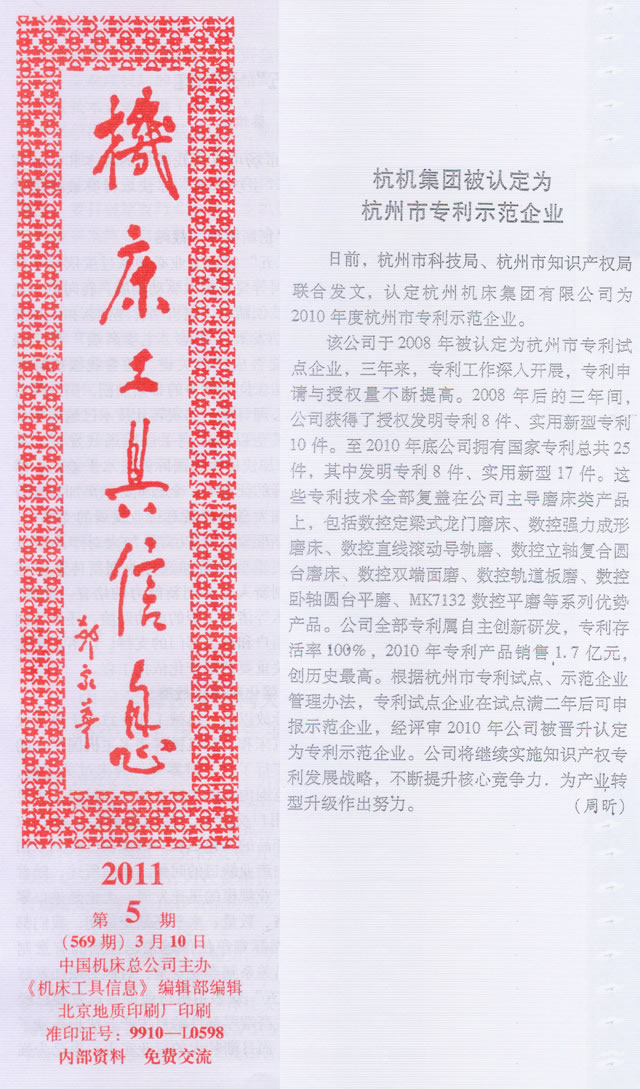 機床工具信息
2011
第 5 期
(569期) 3月10日
中国机床总公司主办
《机床工具信息》编辑部编辑
北京地质印刷厂印刷
准印证号: 9910—L0598
内部资料 免费交流
杭机集团被认定为
杭州市专利示范企业
日前，杭州市科技局、杭州市知识产权局
联合发文，认定杭州机床集团有限公司为
2010年度杭州市专利示范企业。
该公司于2008年被认定为杭州市专利试
点企业，三年来，专利工作深入开展，专利申
请与授权量不断提高。2008年后的三年间，
公司获得了授权发明专利8件、实用新型专利
10件。至2010年底公司拥有国家专利总共25
件，其中发明专利8件、实用新型17件。这
些专利技术全部复盖在公司主导磨床类产品
上，包括数控定梁式龙门磨床、数控强力成形
磨床、数控直线滚动导轨磨、数控立轴复合圆
台磨床、数控双端面磨、数控轨道板磨、数控
卧轴圆台平磨、MK7132数控平磨等系列优势
产品。公司全部专利属自主创新研发，专利存
活率100%，2010年专利产品销售1.7亿元，
创历史最高。根据杭州市专利试点、示范企业
管理办法，专利试点企业在试点满二年后可申
报示范企业，经评审2010年公司被晋升认定
为专利示范企业。公司将继续实施知识产权专
利发展战略，不断提升核心竞争力．为产业转
型升级作出努力。 （周昕）